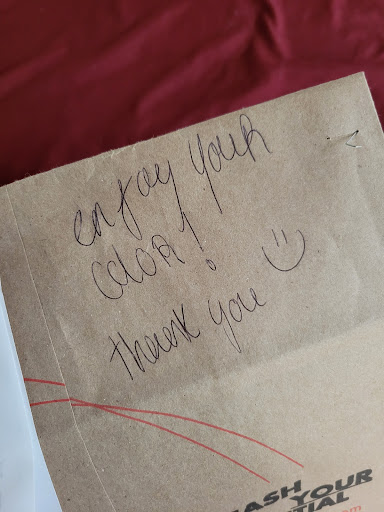 enjoy your
color!
thank you :)
ASH
YOUR
TIAL
om